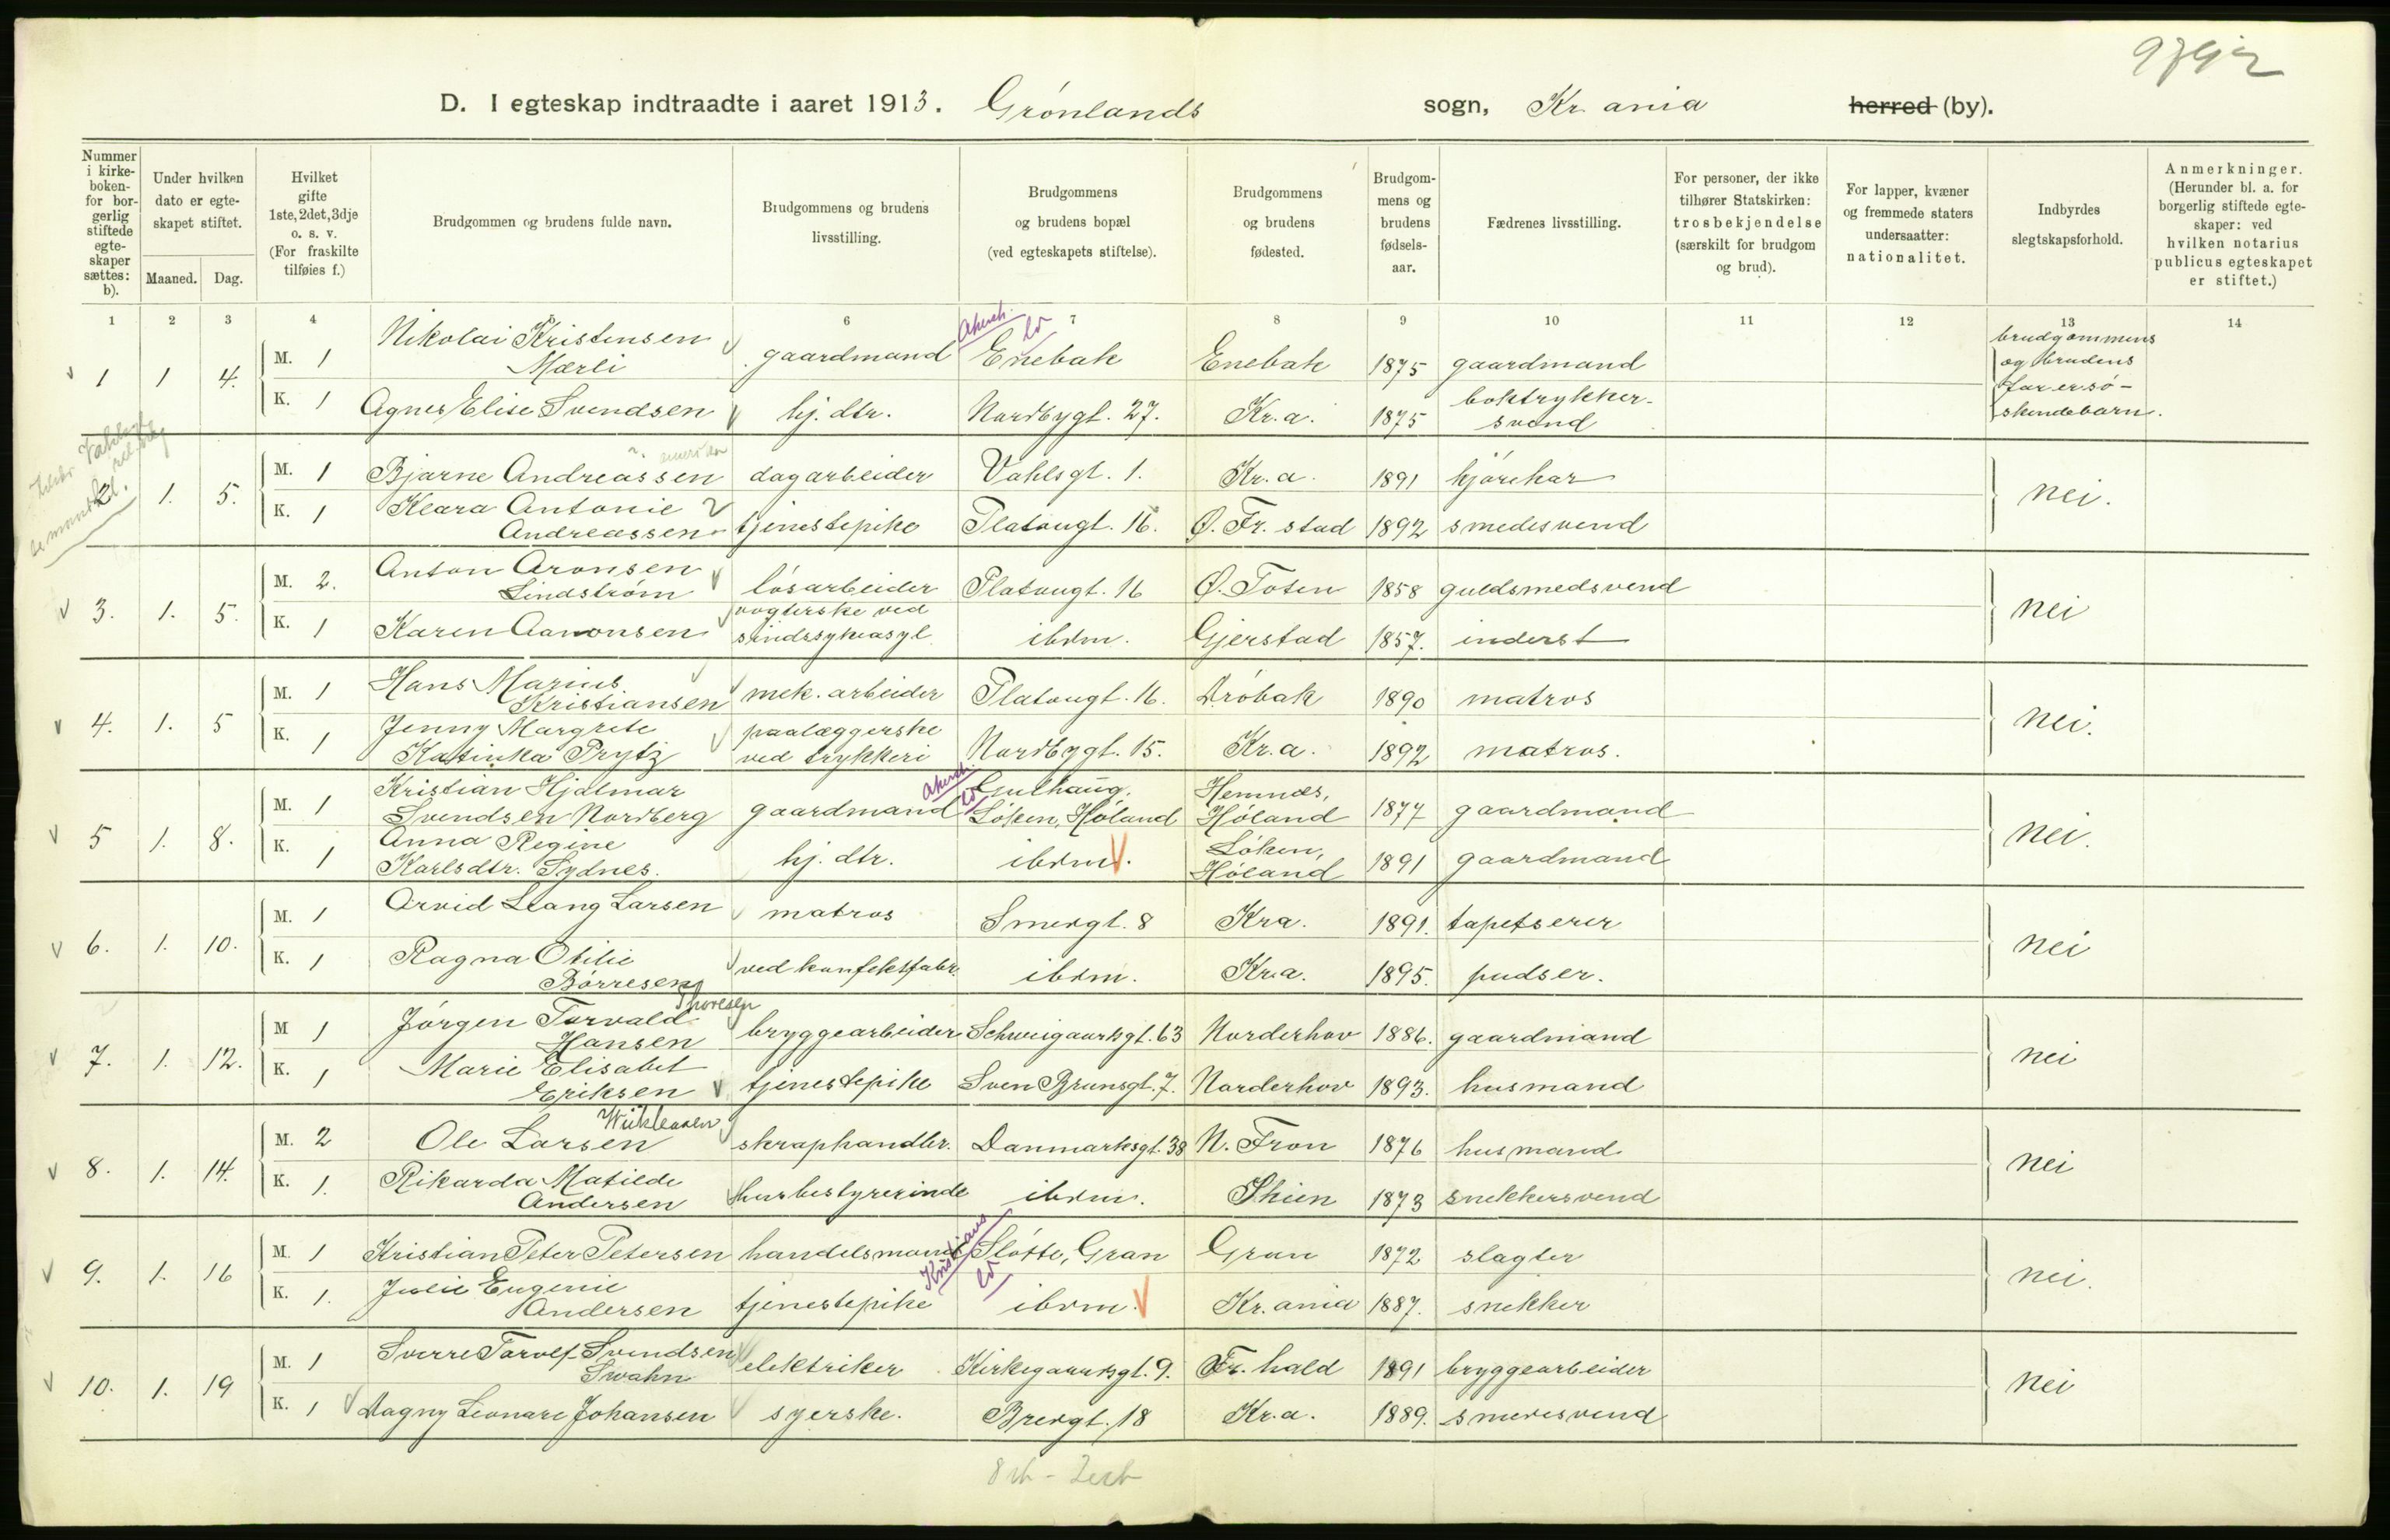 D. I egteskap indtraadte i aaret 1913. Grönlands sogn, Kr. ania herred (by).
Nummer i kirke-boken- for bor-gerlig stiftede egte-skaper sættes: b).
Under hvilken dato er egte-skapet stiftet.
Maaned. Dag.
Hvilket gifte 1ste, 2det, 3dje o. s. v. (For fraskilte tilføies f.)
Brudgommen og brudens fulde navn.
Brudgommens og brudens livsstilling.
Brudgommens og brudens bopæl (ved egteskapets stiftelse).
Brudgommens og brudens fødested.
Brudgom-mens og brudens fødsels-aar.
Fædrenes livsstilling.
For personer, der ikke tilhører Statskirken: trosbekjendelse (særskilt for brudgom og brud).
For lapper, kvæner og fremmede staters undersaatter: nationalitet.
Indbyrdes slegtskapsforhold.
Anmerkninger. (Herunder bl. a. for borgerlig stiftede egte-skaper: ved hvilken notarius publicus egteskapet er stiftet.)
1 2 3 4 5 6 7 8 9 10 11 12 13 14
1 1 4. M. 1 Nikolai Kristensen Mærli gaardmand Akersh. Enebak Enebak 1875 gaardmand brudgommens og brudens far er sö-skendebarn.
K. 1 Agnes Elise Svendsen hj. dtr. Nordbygt. 27. Kr.a. 1875 boktrykker-svend
2. 1. 5. M. 1 Bjarne Andreassen dagarbeider Vahlsgt. 1. Kr.a. 1891 kjörekar nei.
K. 1 Klara Antonie Andreassen tjenestepike Platougt. 16. Ø. Fr. stad 1892 smedesvend
3. 1. 5. M. 2. Anton Aronsen Lindstrøm lösarbeider Platougt. 16 Ø. Toten 1858 guldsmedsvend nei
K. 1 Karen Aanonsen vogterske ved sindssykeasyl ibdm. Gjerstad 1857. inderst
4. 1. 5 M. 1 Hans Marius Kristiansen mek. arbeider Platougt. 16. Dröbak 1890 matros nei.
K. 1 Jenny Margrete Katinka Prytz paalæggerske ved trykkeri Nordbygt. 15. Kr.a. 1892 matros.
5 1. 8. M. 1 Kristian Hjalmar Svendsen Nordberg gaardmand Akersh. Gulhaug. Löken, Höland Hemnæs, Höland 1877 gaardmand nei.
K. 1 Anna Regine Karlsdtr. Sydnes. hj. dtr. ibdm. Löken, Höland 1891 gaardmand
6. 1. 10. M. 1 Arvid Lang Larsen matros Smedgt. 8 Kra. 1891. tapetserer nei
K. 1 Ragna Otilie Börresen ved konfektfabr. ibdm. Kr.a. 1895. pudser.
7. 1. 12. M 1 Jörgen Torvald Thoresen Hansen bryggearbeider Schweigaardsgt. 63 Norderhov 1886. gaardmand nei
K. 1 Marie Elisabet Eriksen tjenestepike Sven Brunsgt. 7. Norderhov 1893. husmand
8. 1. 14. M. 2 Ole Larsen skraphandler. Danmarksgt. 38 N. Fron 1876 husmand nei
K. 1. Rikarda Matilde Andersen husbestyrerinde ibdm. Skien 1873 snekkersvend
9. 1. 16 M. 1 Kristian Peter Petersen handelsmand Kristians Slötte, Gran Gran 1872 slagter nei.
K. 1. Julie Eugenie Andersen tjenestepike ibdm. Kr. ania 1887. snekker
10. 1. 19 M. 1 Sverre Torolf Svendsen Swahn elektriker Kirkegaardsgt. 9. Fr. hald 1891 bryggearbeider nei
K. 1 Dagny Leonare Johansen syerske. Bredgt. 18 Kr.a. 1889. smedesvend